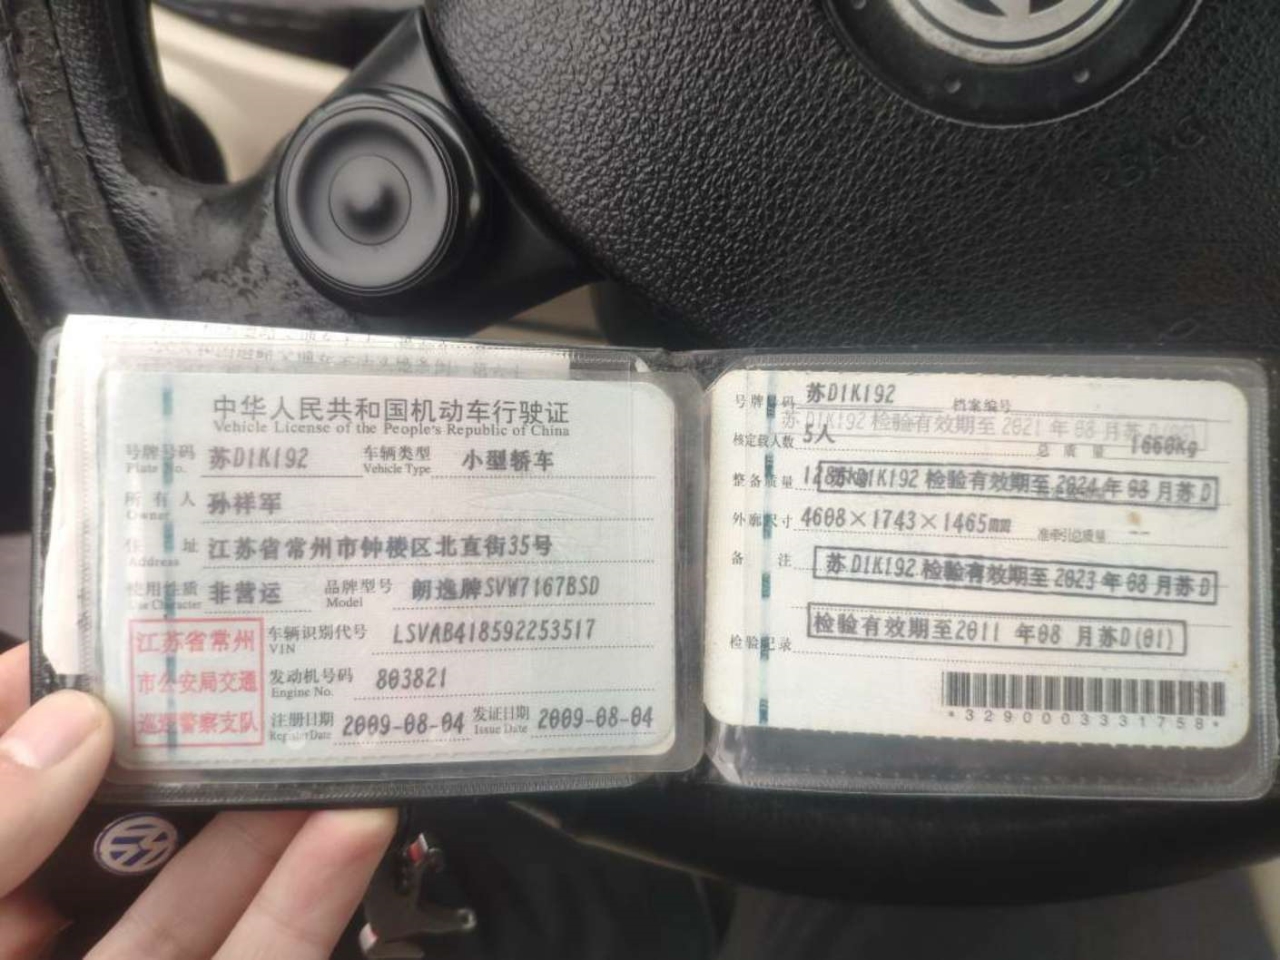 中华人民共和国机动车行驶证
Vehicle License of the People's Republic of China
号牌号码 苏D1K192 车辆类型 小型轿车
Plate No. Vehicle Type
所有人 孙祥军
Owner
住址 江苏省常州市钟楼区北直街35号
Address
使用性质 非营运 品牌型号 朗逸牌SVW7167BSD
Use Character Model
江苏省常州
市公安局交通
巡逻警察支队
车辆识别代号 LSVAB418592253517
VIN
发动机号码 803821
Engine No.
注册日期 2009-08-04 发证日期 2009-08-04
Register Date Issue Date
号牌号码 苏D1K192 档案编号
苏D1K192 检验有效期至 2021 年 08 月苏D
核定载人数 5人 总质量 1660kg
整备质量
苏D1K192 检验有效期至 2024 年 08 月苏D
外廓尺寸 4608×1743×1465mm 准牵引总质量 --
备注
苏D1K192 检验有效期至 2023 年 08 月苏D
检验记录 检验有效期至2011 年08 月苏D(01)
*3290003331758*